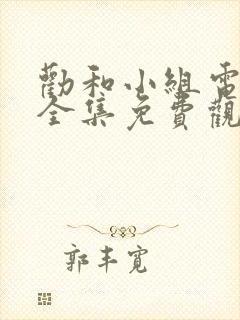 勸和小組電
全集免費觀
郭丰寬